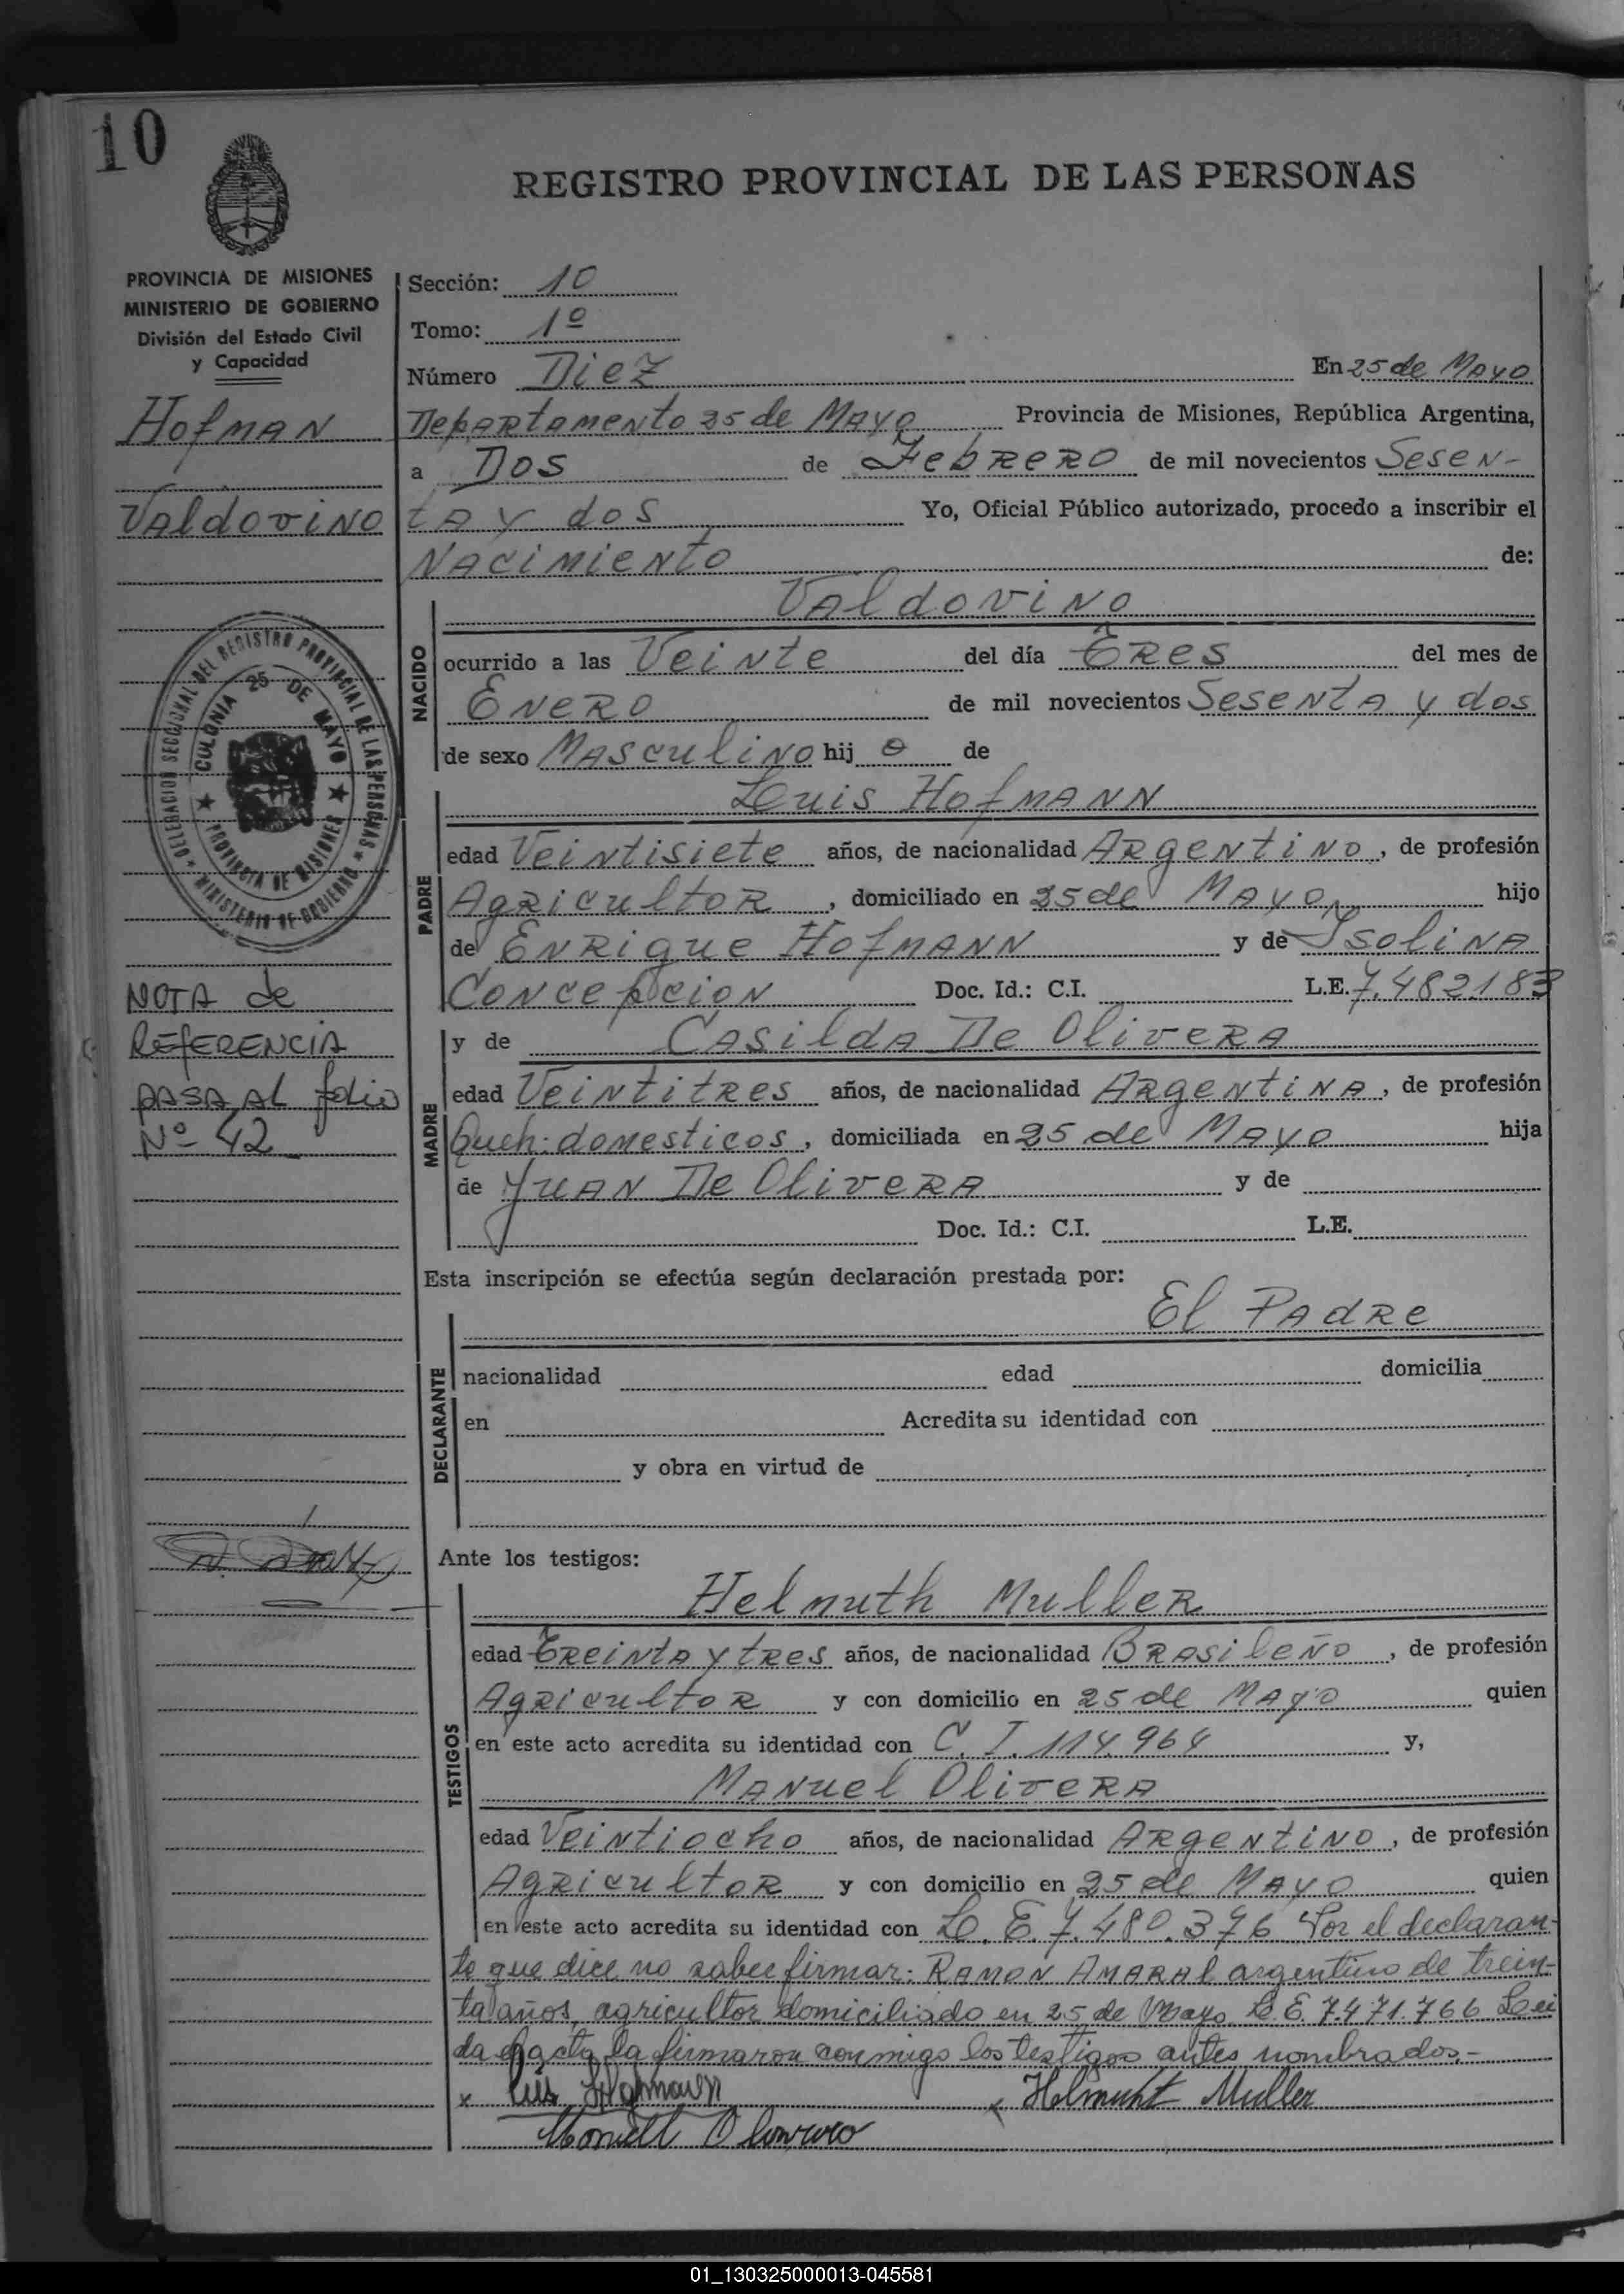 10
REGISTRO PROVINCIAL DE LAS PERSONAS
PROVINCIA DE MISIONES
MINISTERIO DE GOBIERNO
División del Estado Civil
y Capacidad
Hofman
Valdovino
DELEGACION SECCIONAL DEL REGISTRO PROVINCIAL DE LAS PERSONAS * MINISTERIO DE GOBIERNO *
COLONIA 25 DE MAYO ★ PROVINCIA DE MISIONES ★
NOTA de
REfERENCIA
PASA AL folio
Nº 42
Sección: 10
Tomo: 1º
Número Diez En 25 de Mayo
Departamento 25 de Mayo Provincia de Misiones, República Argentina,
a Dos de Febrero de mil novecientos Sesen-
ta y dos Yo, Oficial Público autorizado, procedo a inscribir el
Nacimiento de:
NACIDO
Valdovino
ocurrido a las Veinte del día Tres del mes de
Enero de mil novecientos Sesenta y dos
de sexo Masculino hij o de
PADRE
Luis Hofmann
edad Veintisiete años, de nacionalidad Argentino, de profesión
Agricultor, domiciliado en 25 de Mayo hijo
de Enrique Hofmann y de Ysolina
Concepcion Doc. Id.: C.I. L.E. 7.482.183
MADRE
y de Casilda De Olivera
edad Veintitres años, de nacionalidad Argentina, de profesión
Queh. domesticos, domiciliada en 25 de Mayo hija
de Juan De Olivera y de
Doc. Id.: C.I. L.E.
Esta inscripción se efectúa según declaración prestada por:
DECLARANTE
El Padre
nacionalidad edad domicilia
en Acredita su identidad con
y obra en virtud de
Ante los testigos:
TESTIGOS
Helmuth Muller
edad Treinta y tres años, de nacionalidad Brasileño, de profesión
Agricultor y con domicilio en 25 de Mayo quien
en este acto acredita su identidad con C. I. 114.964 y,
Manuel Olivera
edad Veintiocho años, de nacionalidad Argentino, de profesión
Agricultor y con domicilio en 25 de Mayo quien
en este acto acredita su identidad con L. E. 7.480.376 Por el declaran-
te que dice no saber firmar: Ramon Amaral argentino de trein-
ta años, agricultor domiciliado en 25 de Mayo L. E. 7.471.766 Lei
da el acta la firmaron conmigo los testigos antes nombrados.-
x Luis x Helmuht Muller
01_130325000013-045581